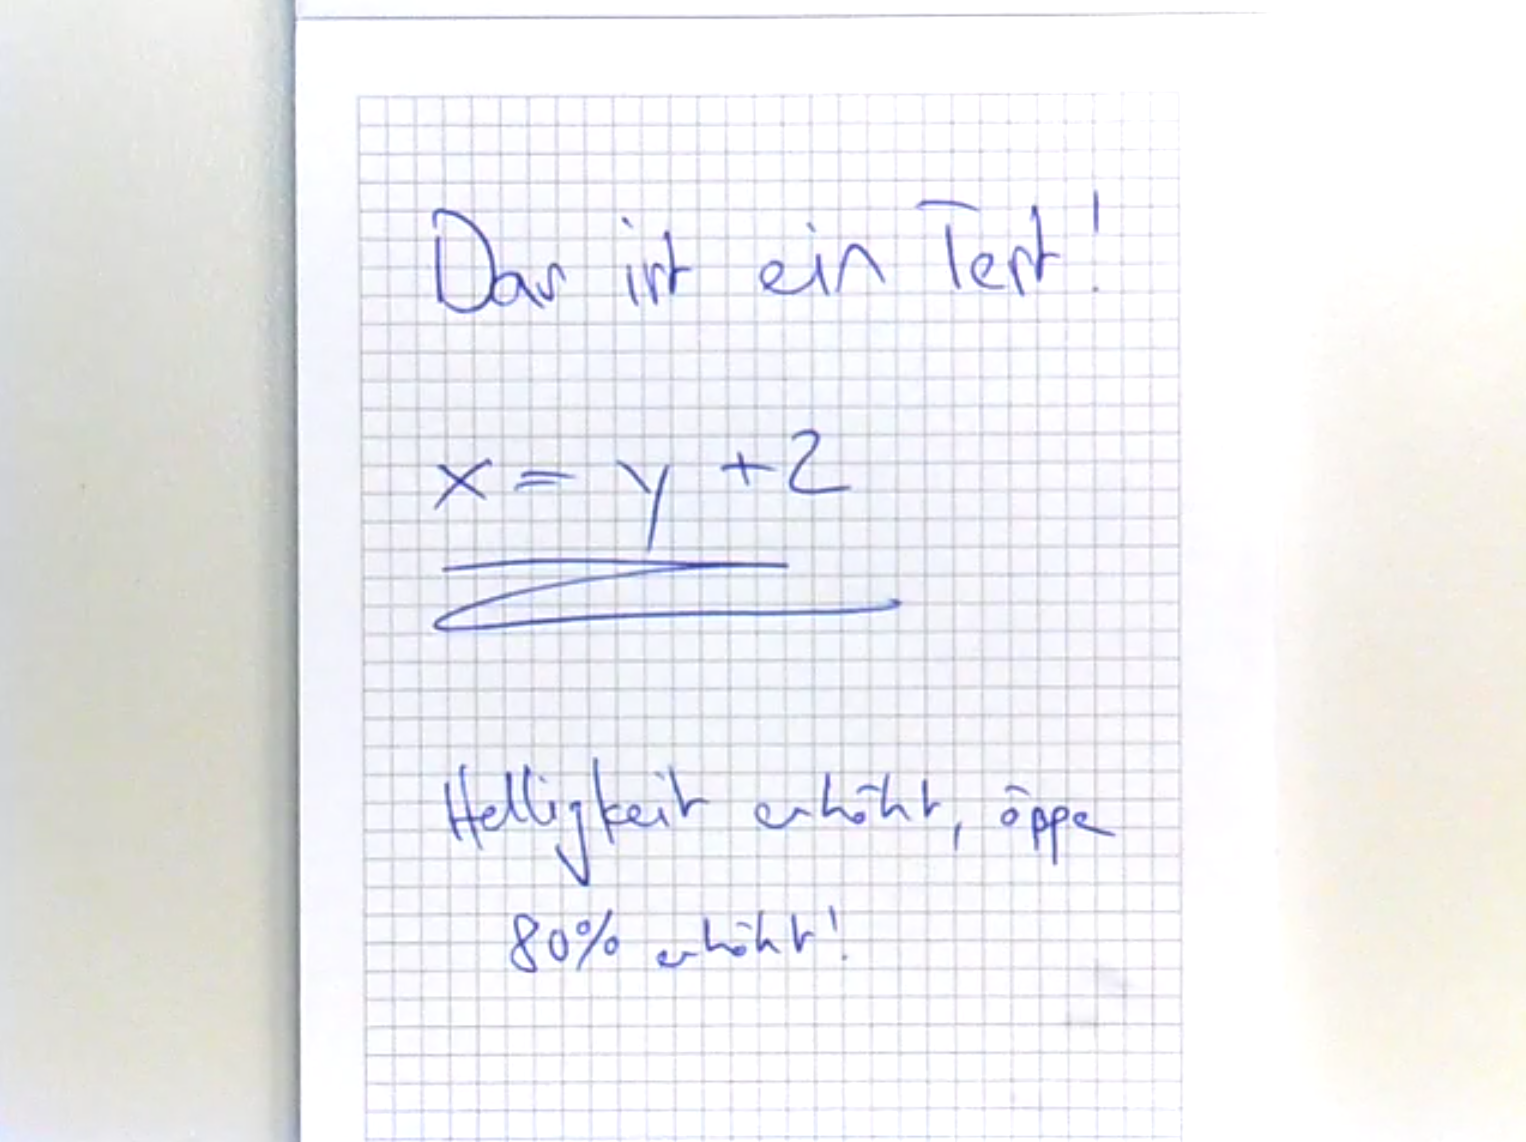 Das ist ein Test!
x = y + 2
Helligkeit erhöht, öppe
80% erhöht!